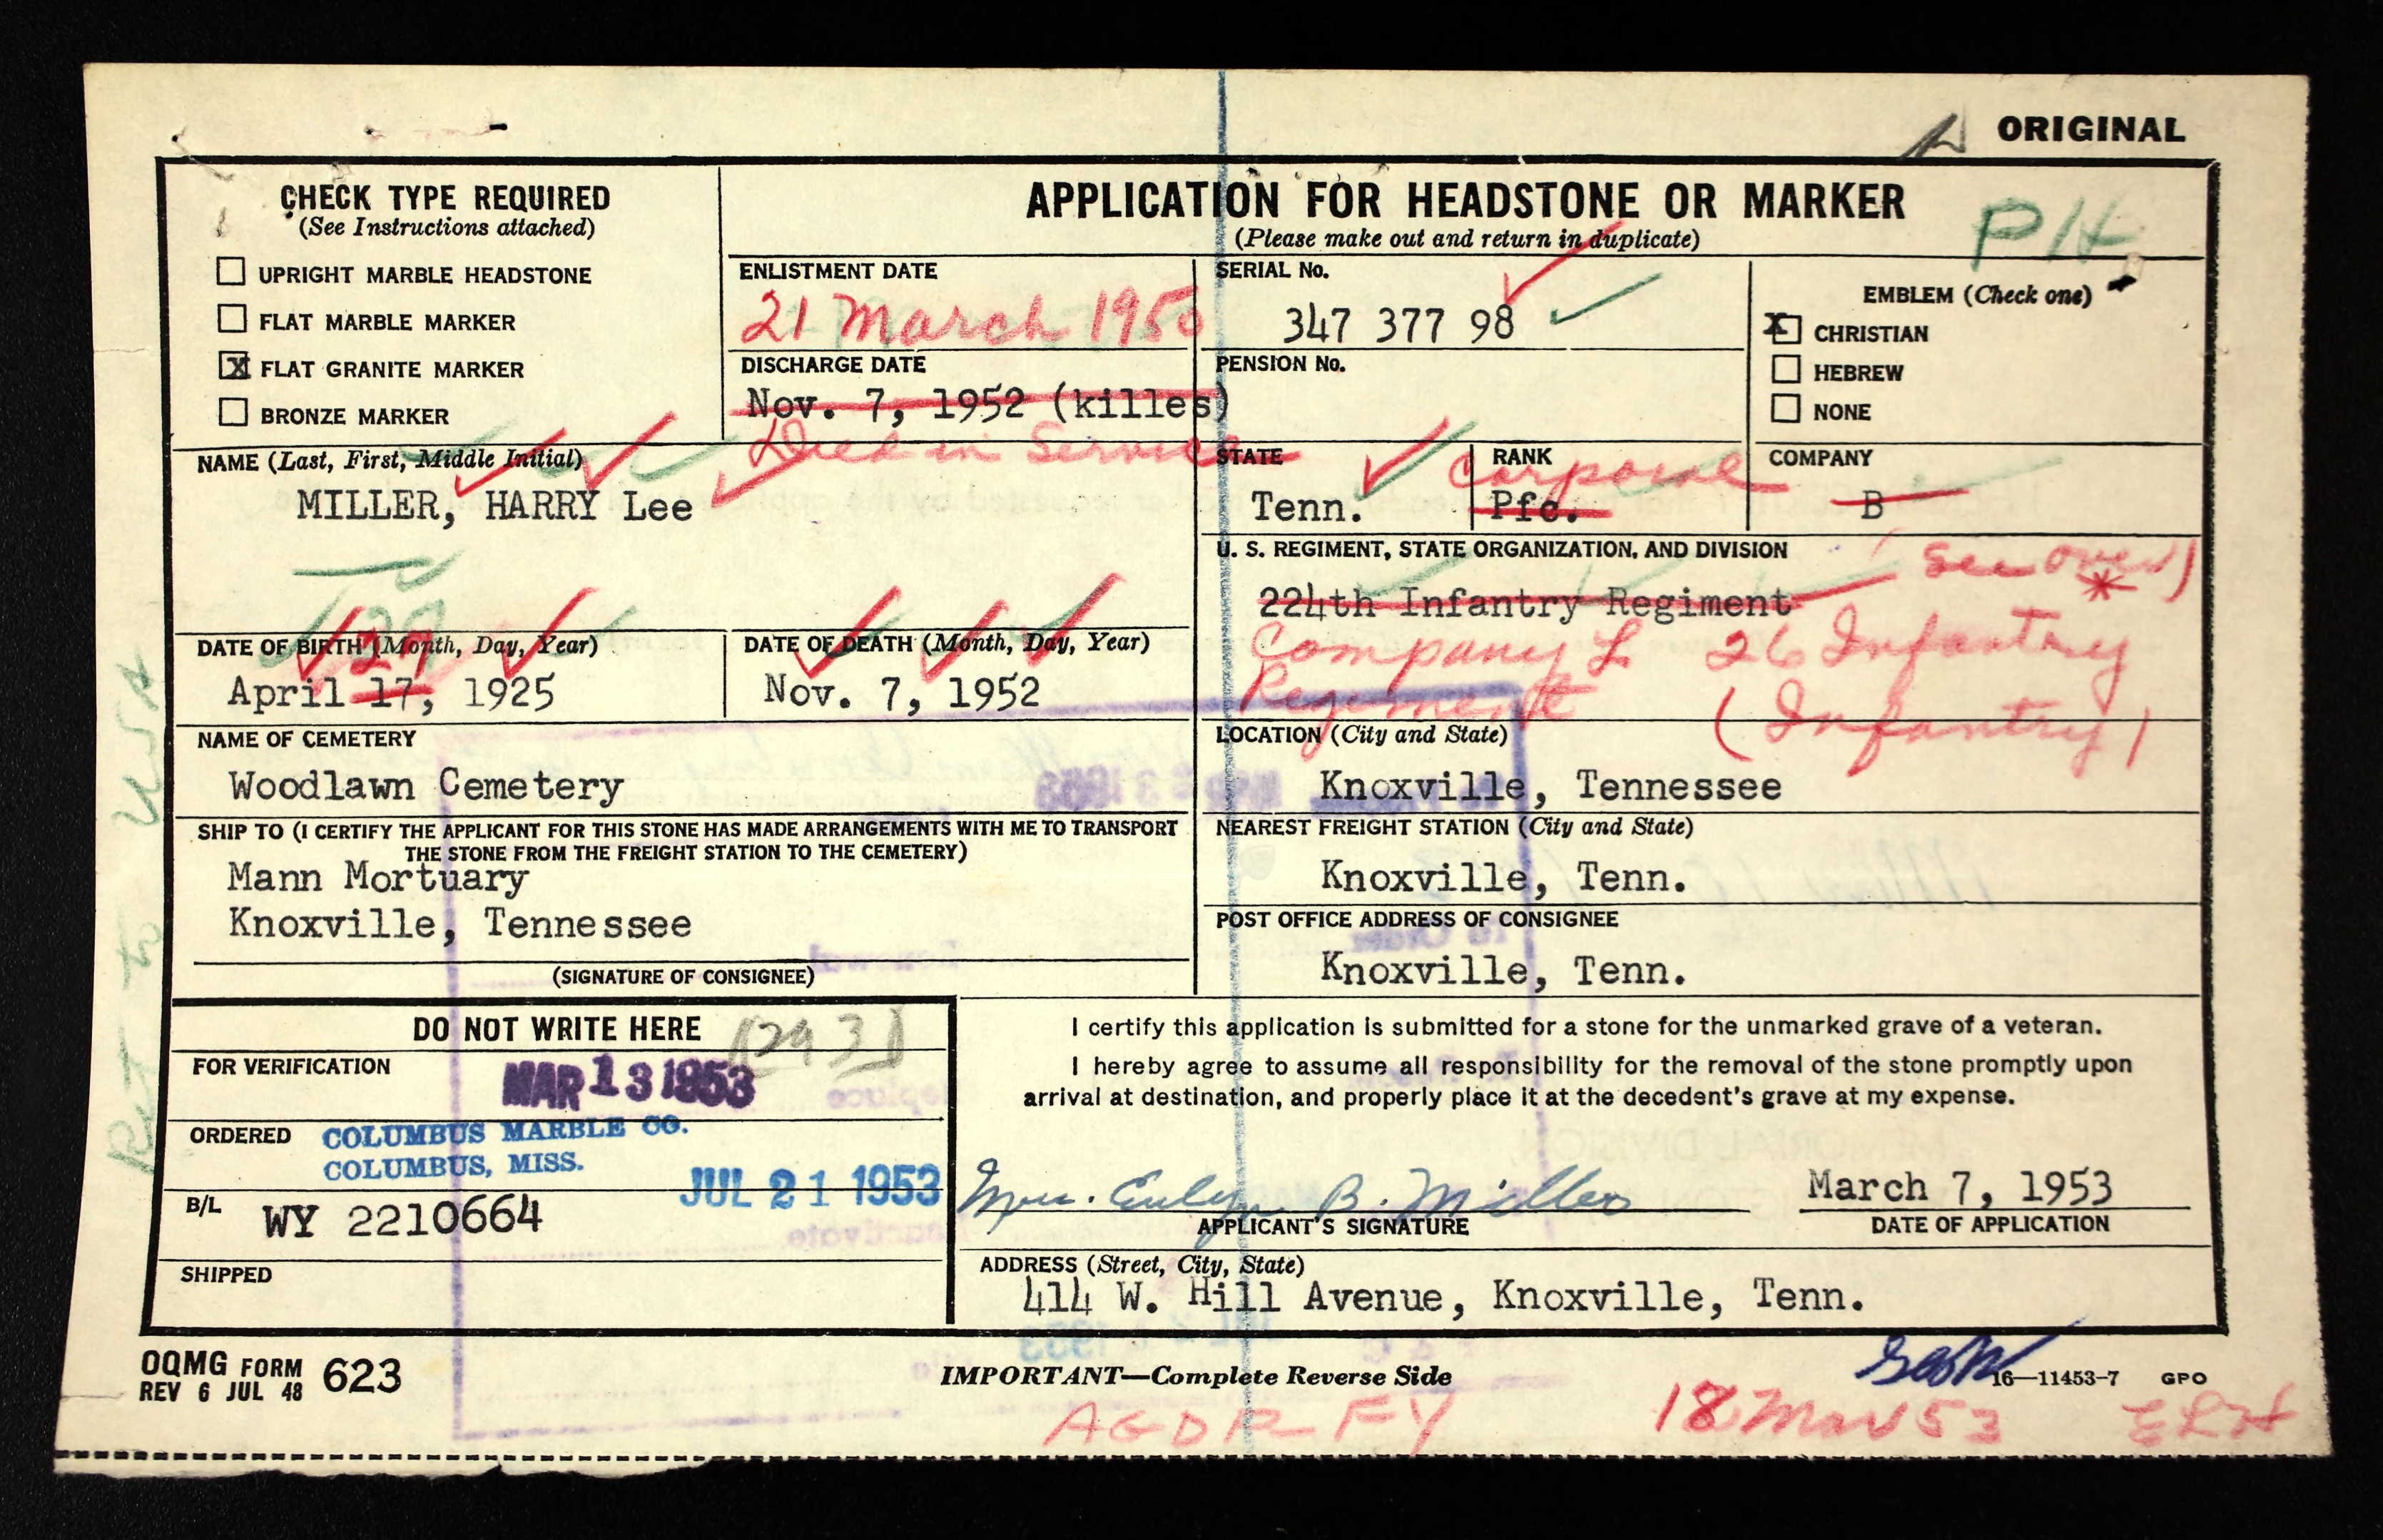 ORIGINAL
CHECK TYPE REQUIRED
(See Instructions attached)
UPRIGHT MARBLE HEADSTONE
FLAT MARBLE MARKER
X FLAT GRANITE MARKER
BRONZE MARKER
APPLICATION FOR HEADSTONE OR MARKER
(Please make out and return in duplicate)
PH
ENLISTMENT DATE
21 March 1950
SERIAL No.
347 377 98
EMBLEM (Check one)
X CHRISTIAN
HEBREW
NONE
DISCHARGE DATE
Nov. 7, 1952 (killes)
Died in Service
PENSION No.
NAME (Last, First, Middle Initial)
MILLER, HARRY Lee
STATE
Tenn.
RANK
Corporal
Pfc.
COMPANY
B
U. S. REGIMENT, STATE ORGANIZATION, AND DIVISION
224th Infantry Regiment
See over)
*
Company L 26 Infantry
Regiment (Infantry)
DATE OF BIRTH (Month, Day, Year)
27
April 17, 1925
DATE OF DEATH (Month, Day, Year)
Nov. 7, 1952
NAME OF CEMETERY
Woodlawn Cemetery
LOCATION (City and State)
Knoxville, Tennessee
SHIP TO (I CERTIFY THE APPLICANT FOR THIS STONE HAS MADE ARRANGEMENTS WITH ME TO TRANSPORT
THE STONE FROM THE FREIGHT STATION TO THE CEMETERY)
Mann Mortuary
Knoxville, Tennessee
(SIGNATURE OF CONSIGNEE)
NEAREST FREIGHT STATION (City and State)
Knoxville, Tenn.
POST OFFICE ADDRESS OF CONSIGNEE
Knoxville, Tenn.
DO NOT WRITE HERE
FOR VERIFICATION
MAR 13 1953
ORDERED
COLUMBUS MARBLE CO.
COLUMBUS, MISS.
JUL 21 1953
B/L
WY 2210664
SHIPPED
I certify this application is submitted for a stone for the unmarked grave of a veteran.
I hereby agree to assume all responsibility for the removal of the stone promptly upon
arrival at destination, and properly place it at the decedent's grave at my expense.
Mrs. Evelyn B. Miller
APPLICANT'S SIGNATURE
March 7, 1953
DATE OF APPLICATION
ADDRESS (Street, City, State)
414 W. Hill Avenue, Knoxville, Tenn.
OQMG FORM 623
REV 6 JUL 48
IMPORTANT—Complete Reverse Side
16—11453-7 GPO
AGDR FY
18 Mar 53
ELH
Ret to USA